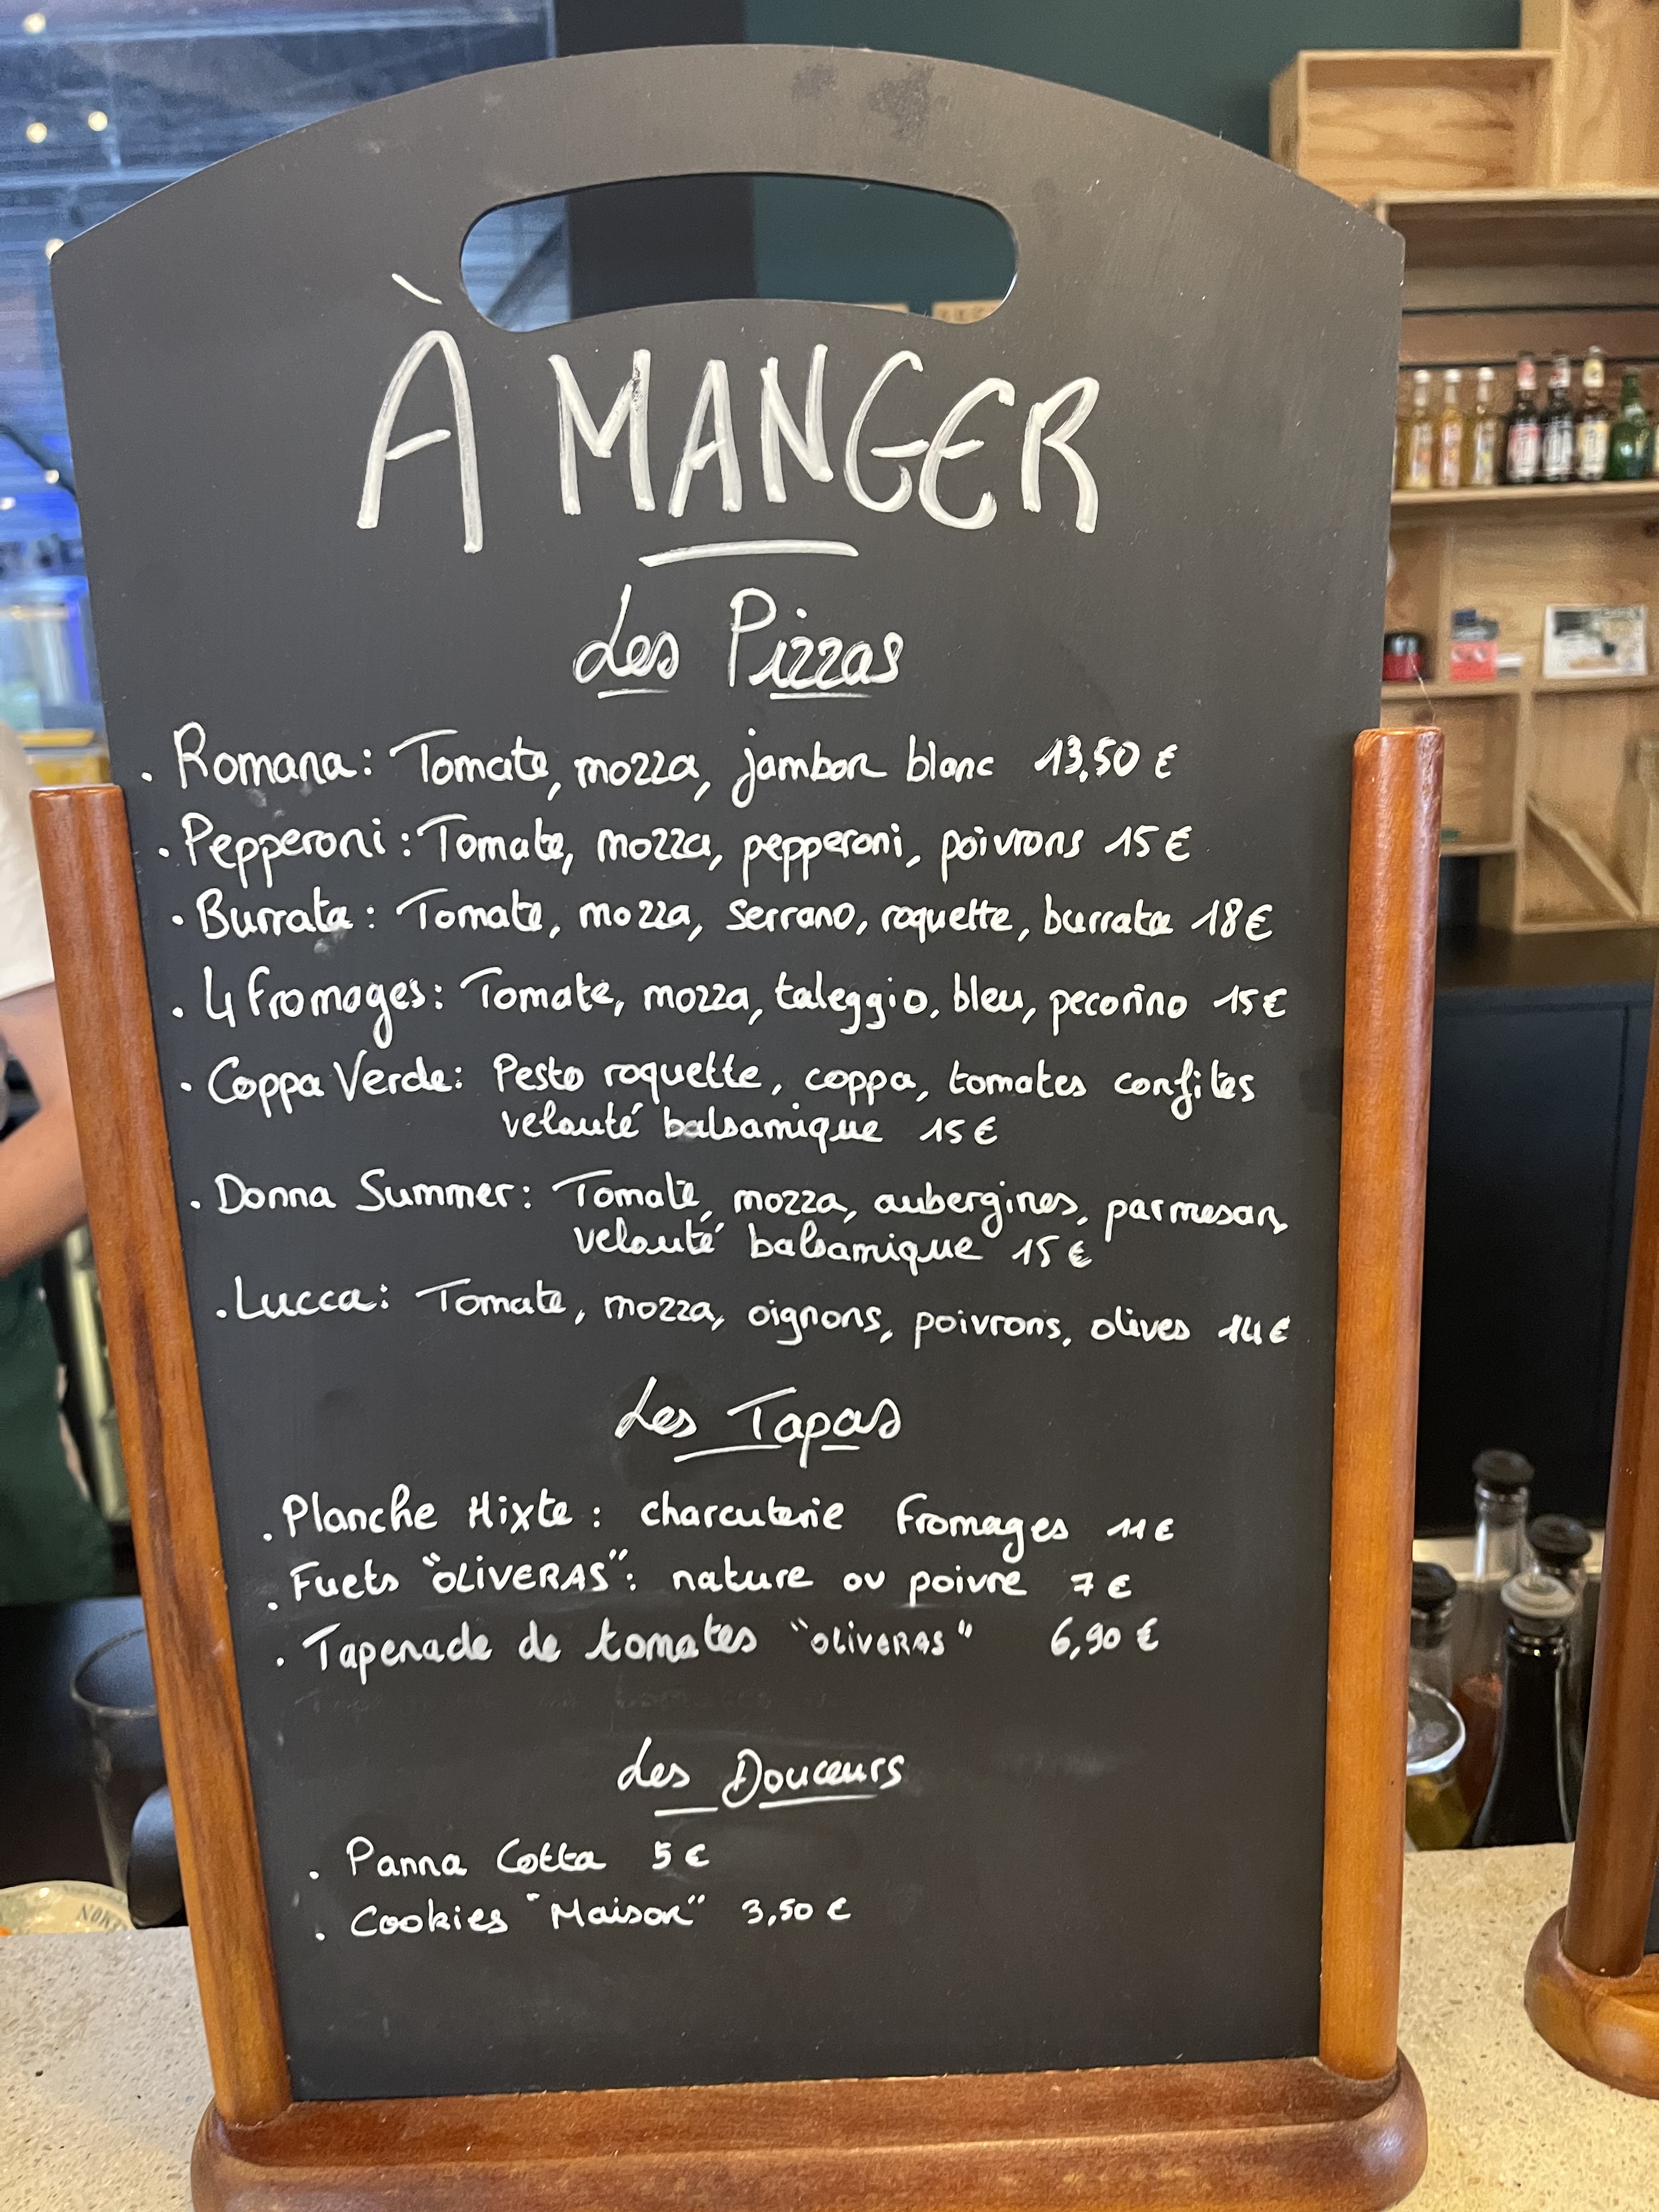 À MANGER
Les Pizzas
. Romana : Tomate, mozza, jambon blanc 13,50 €
. Pepperoni : Tomate, mozza, pepperoni, poivrons 15 €
. Burrata : Tomate, mozza, serrano, roquette, burrata 18 €
. 4 fromages : Tomate, mozza, taleggio, bleu, pecorino 15 €
. Coppa Verde : Pesto roquette, coppa, tomates confites
velouté balsamique 15 €
. Donna Summer : Tomate, mozza, aubergines, parmesan,
velouté balsamique 15 €
. Lucca : Tomate, mozza, oignons, poivrons, olives 14 €
Les Tapas
. Planche Mixte : charcuterie fromages 11 €
. Fuets "OLIVERAS" : nature ou poivre 7 €
. Tapenade de tomates "OLIVERAS" 6,90 €
Les Douceurs
. Panna Cotta 5 €
. Cookies "Maison" 3,50 €